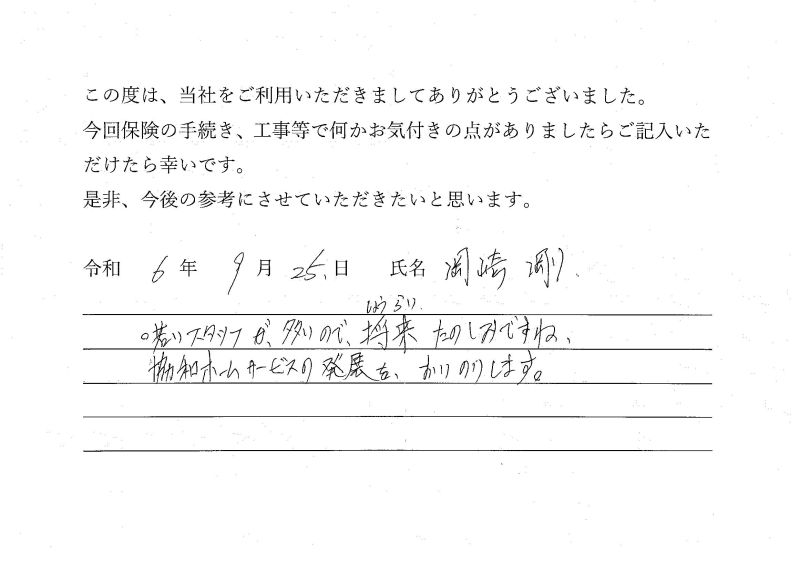 この度は、当社をご利用いただきましてありがとうございました。
今回保険の手続き、工事等で何かお気付きの点がありましたらご記入いた
だけたら幸いです。
是非、今後の参考にさせていただきたいと思います。
令和 6 年 9 月 25 日 氏名 岡崎 剛
しょうらい
○若いスタッフが、多いので、将来 たのしみですね、
協和ホームサービスの発展を、おいのりします。